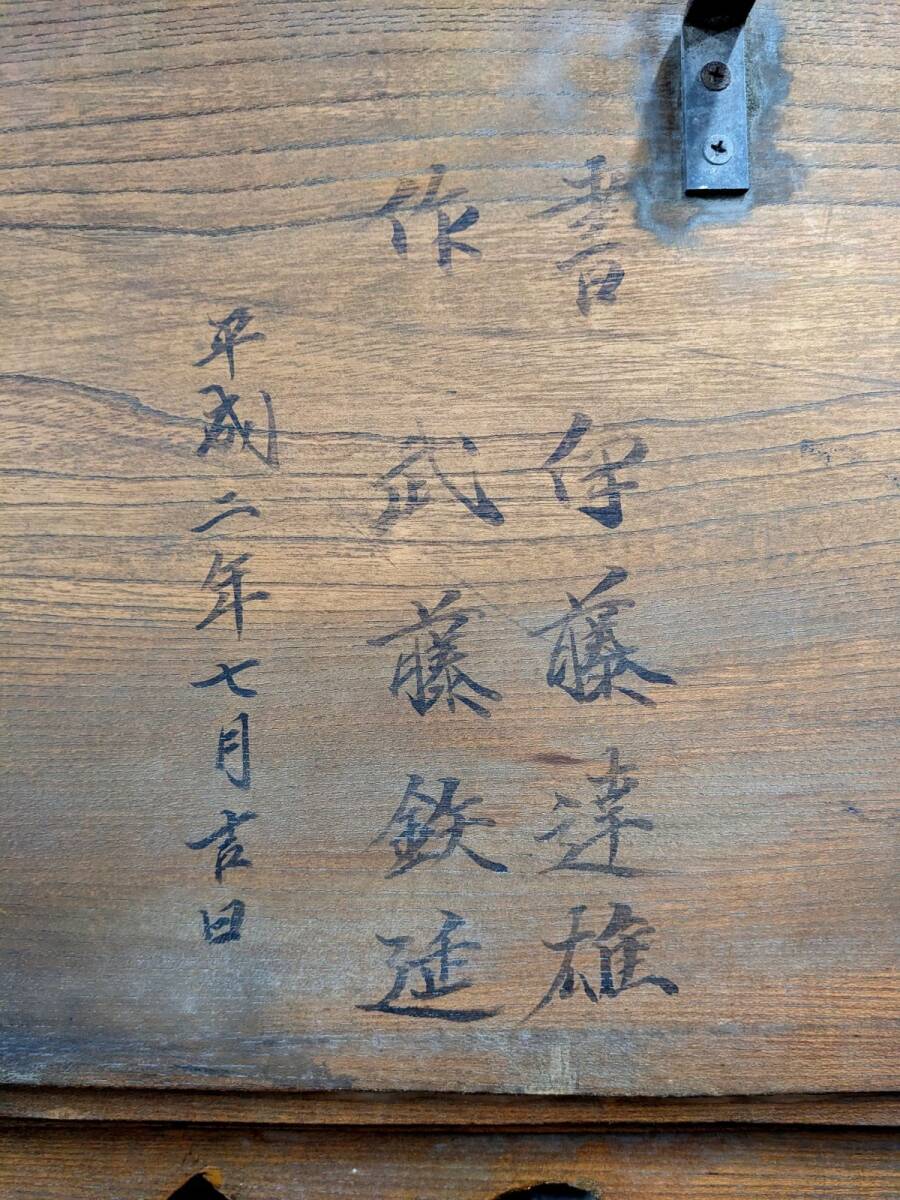 書 伊藤達雄
作 武藤鉄延
平成二年七月吉日